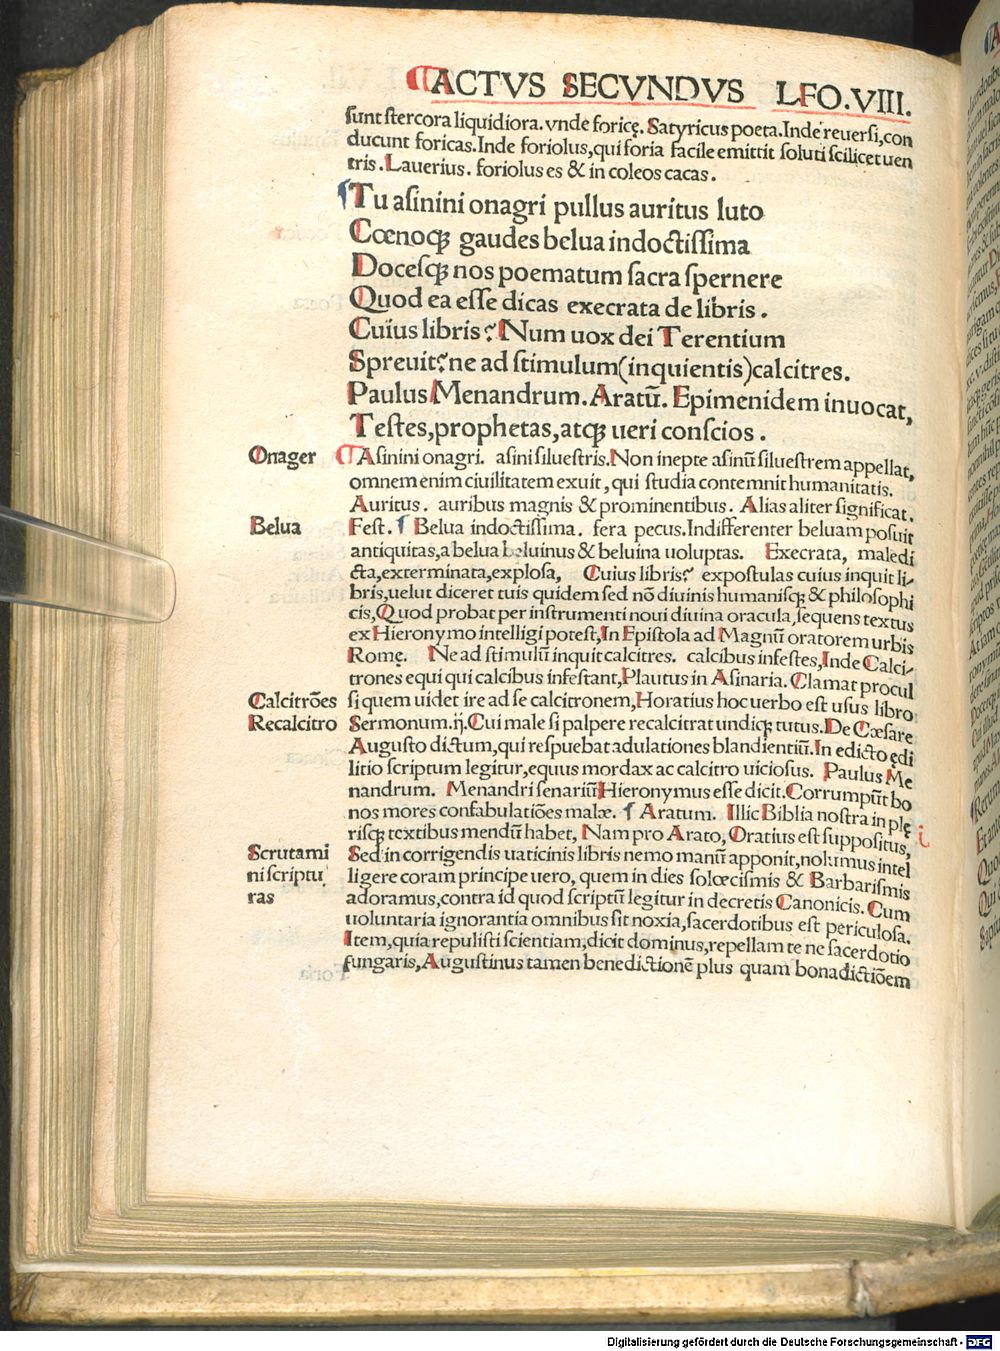 ACTVS SECVNDVS LFO.VIII.
sunt stercora liquidiora. vnde foricę. Satyricus poeta. Inde reuersi, con
ducunt foricas. Inde foriolus, qui foria facile emittit soluti scilicet uen
tris. Lauerius. foriolus es & in coleos cacas.
¶Tu asinini onagri pullus auritus luto
Cœnoqꝫ gaudes belua indoctissima
Docesqꝫ nos poematum sacra spernere
Quod ea esse dicas execrata de libris.
Cuius libris? Num uox dei Terentium
Spreuit? ne ad stimulum (inquientis) calcitres.
Paulus Menandrum. Aratū. Epimenidem inuocat,
Testes, prophetas, atqꝫ ueri conscios.
Onager
¶Asinini onagri. asini siluestris. Non inepte asinū siluestrem appellat,
omnem enim ciuilitatem exuit, qui studia contemnit humanitatis.
Auritus. auribus magnis & prominentibus. Alias aliter significat.
Belua
Fest. ¶ Belua indoctissima. fera pecus. Indifferenter beluam posuit
antiquitas, a belua beluinus & beluina uoluptas. Execrata, maledi
cta, exterminata, explosa, Cuius libris? expostulas cuius inquit li-
bris, uelut diceret tuis quidem sed nō diuinis humanisqꝫ & philosophi
cis, Quod probat per instrumenti noui diuina oracula, sequens textus
ex Hieronymo intelligi potest, In Epistola ad Magnū oratorem urbis
Romę. Ne ad stimulū inquit calcitres. calcibus infestes, Inde Calci-
trones equi qui calcibus infestant, Plautus in Asinaria. Clamat procul
Calcitrōes
si quem uidet ire ad se calcitronem, Horatius hoc uerbo est usus libro
Recalcitro
Sermonum.ij. Cui male si palpere recalcitrat undiqꝫ tutus. De Cæsare
Augusto dictum, qui respuebat adulationes blandientiū. In edicto ędi
litio scriptum legitur, equus mordax ac calcitro uiciosus. Paulus Me
nandrum. Menandri senariū Hieronymus esse dicit. Corrumpūt bo
nos mores confabulatiōes malæ. ¶ Aratum. Illic Biblia nostra in plę
risqꝫ textibus mendū habet, Nam pro Arato, Oratius est suppositus,
i
Scrutami
Sed in corrigendis uaticinis libris nemo manū apponit, nolumus intel
ni scriptu
ligere coram principe uero, quem in dies solœcismis & Barbarismis
ras
adoramus, contra id quod scriptū legitur in decretis Canonicis. Cum
uoluntaria ignorantia omnibus sit noxia, sacerdotibus est periculosa.
Item, quia repulisti scientiam, dicit dominus, repellam te ne sacerdotio
fungaris, Augustinus tamen benedictionē plus quam bonadictiōem
Digitalisierung gefördert durch die Deutsche Forschungsgemeinschaft - DFG